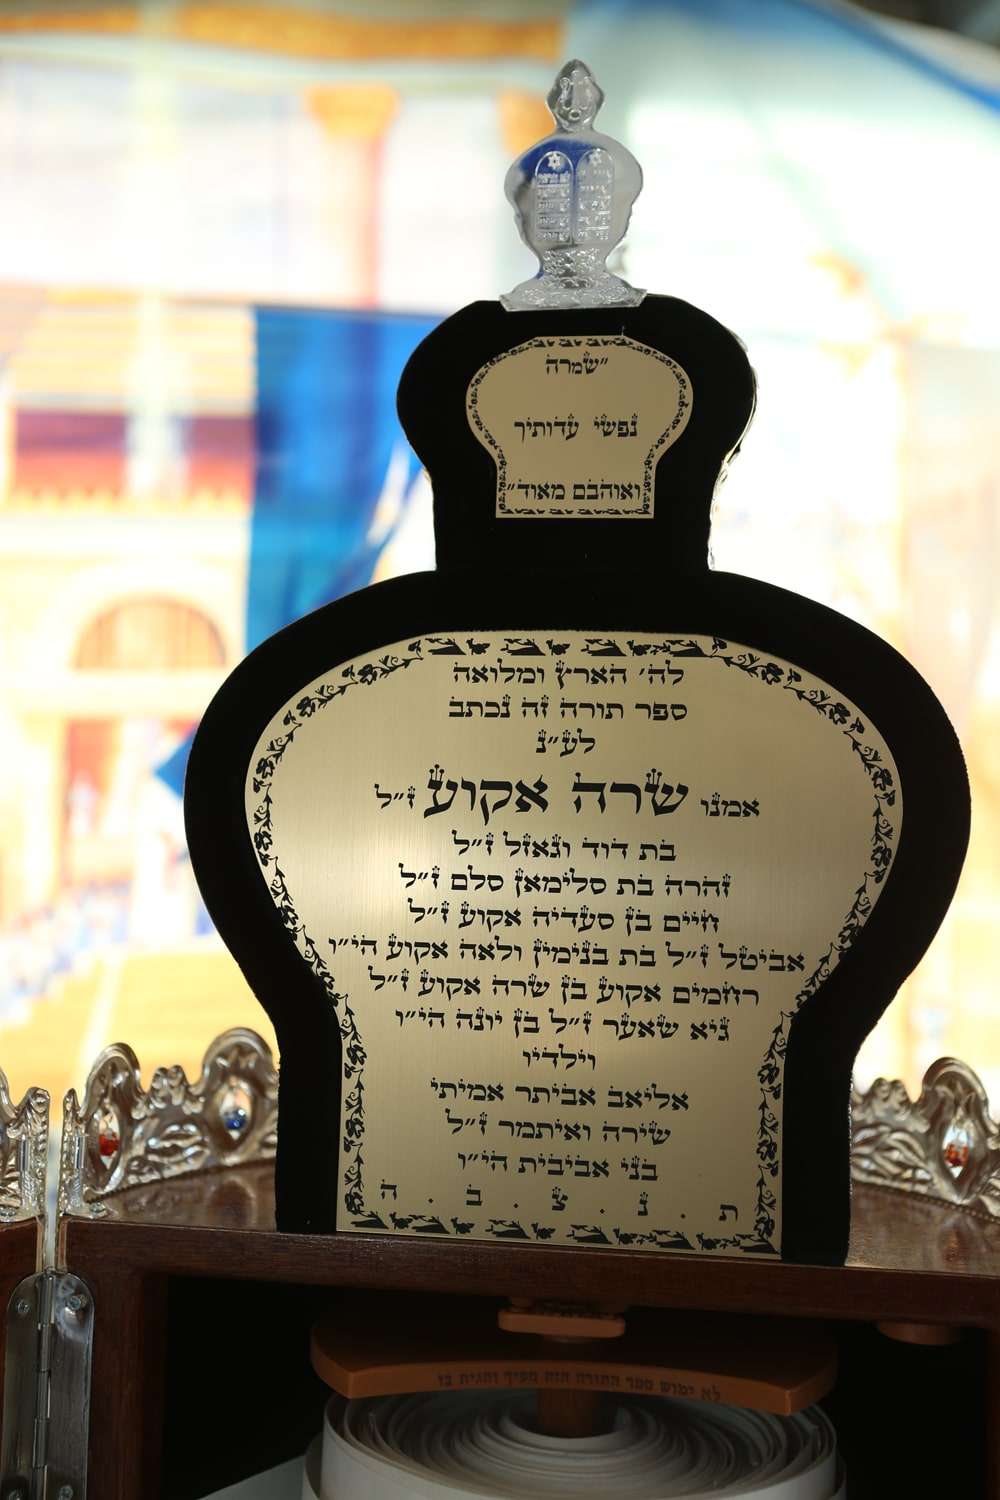 "שמרה
נפשי עדותיך
ואוהבם מאוד"
לה' הארץ ומלואה
ספר תורה זה נכתב
לע"נ
אמנו שרה אקוע ז"ל
בת דוד וגאזל ז"ל
זהרה בת סלימאן סלם ז"ל
חיים בן סעדיה אקוע ז"ל
אביטל ז"ל בת בנימין ולאה אקוע הי"ו
רחמים אקוע בן שרה אקוע ז"ל
גיא שאער ז"ל בן יונה הי"ו
וילדיו
אליאב אביתר אמיתי
שירה ואיתמר ז"ל
בני אביבית הי"ו
ת . נ . צ . ב . ה
לא ימוש ספר התורה הזה מפיך והגית בו